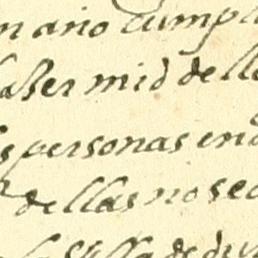 n año cumpl
aser mid dell
s personas en
dellas no sea